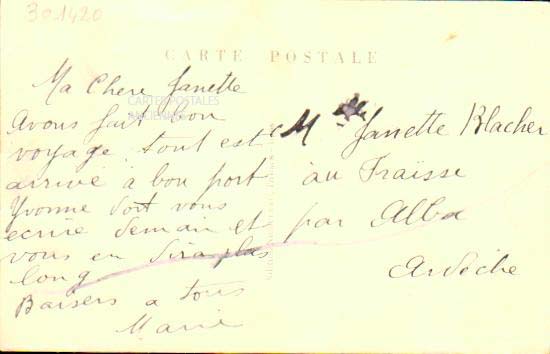 38.1420
CARTE POSTALE
CARTES POSTALES
ANCIENNES
Ma Chere Janette
Avons fait bon
voyage. tout est
arrivé à bon port
Yvonne doit vous
ecrire demain et
vous en dira plus
long
Baisers a tous
Marie
Mlle Janette Blacher
au Fraïsse
par Alba
Ardèche